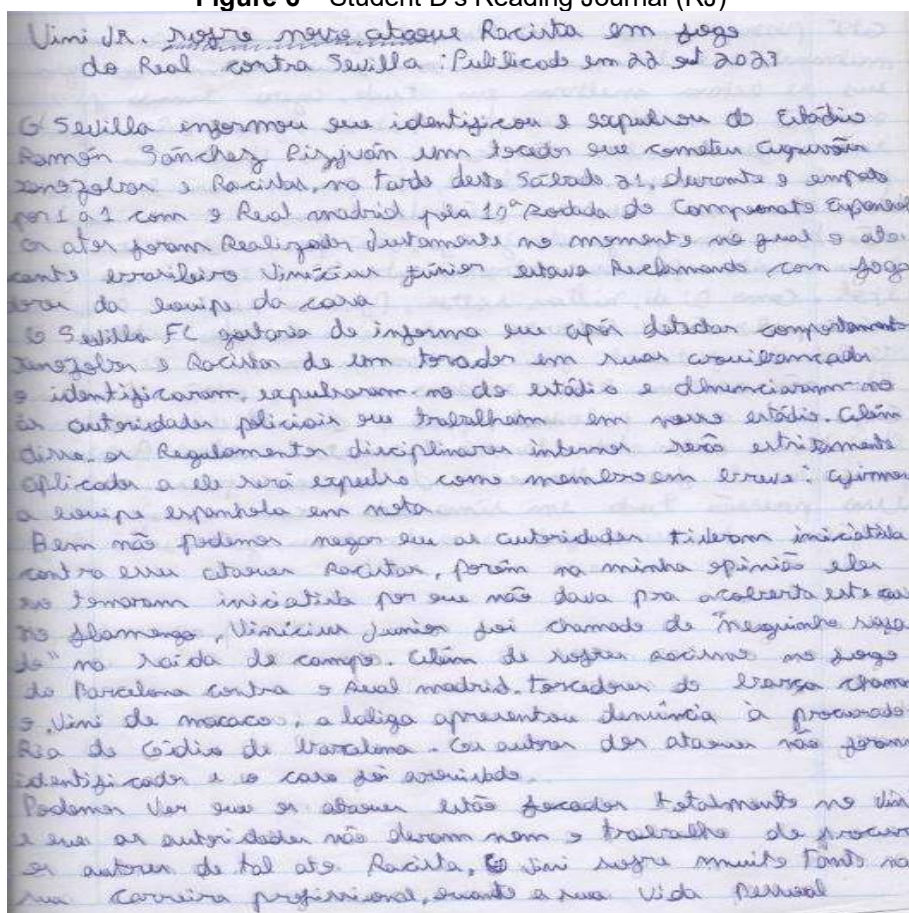 Figure 6 – Student D's Reading Journal (RJ)
Vini JR. sofre novo ataque Racista em jogo
do Real contra Sevilla : Publicado em 22 out 2023
O Sevilla informou que identificou e expulsou do Estádio
Ramón Sánchez Pizjuán um tocedor que cometeu agressões
xenofobas e Racistas, na tarde deste Sábado 21, durante o empate
por 1 a 1 com o Real madrid pela 10ª Rodada do Campeonato Espanhol
Os atos foram Realizados Justamente no momento no qual o ata
cante brasileiro Vinícius júnior estava Reclamando com joga
dores da equipe da casa
O Sevilla FC gostaria de informa que após detectar comportamento
xenofobos e Racistas de um torcedor em suas arquibancadas
o identificaram, expulsaram-no do estádio e denunciaram-no
às autoridades policiais que trabalham em nosso estádio. Além
disso, os Regulamentos disciplinares internos serão estritamente
aplicados a ele será expulso como membro em breve". afirmou
a equipe espanhola em nota
Bem não podemos negar que as autoridades tiveram iniciativa
contra esses ataques Racistas, porém na minha opinião eles
so tomaram iniciativa por que não dava pra acoberta este caso
no flamengo, Vinícius Junior foi chamado de "neguinho safa
do" na saída de campo. Além de sofrer racismo no jogo
do Barcelona contra o Real madrid. torcedores do barça chama
o Vini de macaco, a laliga apresentou denúncia à procurado
Ria de Ódio de barcelona. Os autores dos ataques não foram
identificados e o caso foi arquivado.
Podemos Ver que os ataques estão focados totalmente no Vini
e que as autoridades não deram nem o trabalho de procurar
os autores de tal ato Racista, o Vini sofre muito tanto na
sua carreira profissional, quanto a sua Vida Pessoal